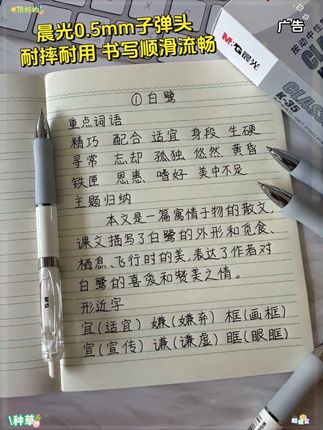 顶好的
广告
晨光0.5mm子弹头
耐摔耐用 书写顺滑流畅
M&G晨光
按动中性
CLASSI
K-35
①白鹭
重点词语
精巧 配合 适宜 身段 生硬
寻常 忘却 孤独 悠然 黄昏
铁匣 恩惠 嗜好 美中不足
主题归纳
本文是一篇寓情于物的散文,
课文描写了白鹭的外形和觅食、
栖息、飞行时的美,表达了作者对
白鹭的喜爱和赞美之情。
形近字
宜(适宜) 嫌(嫌弃) 框(画框)
宣(宣传) 谦(谦虚) 眶(眼眶)
M&G
种草